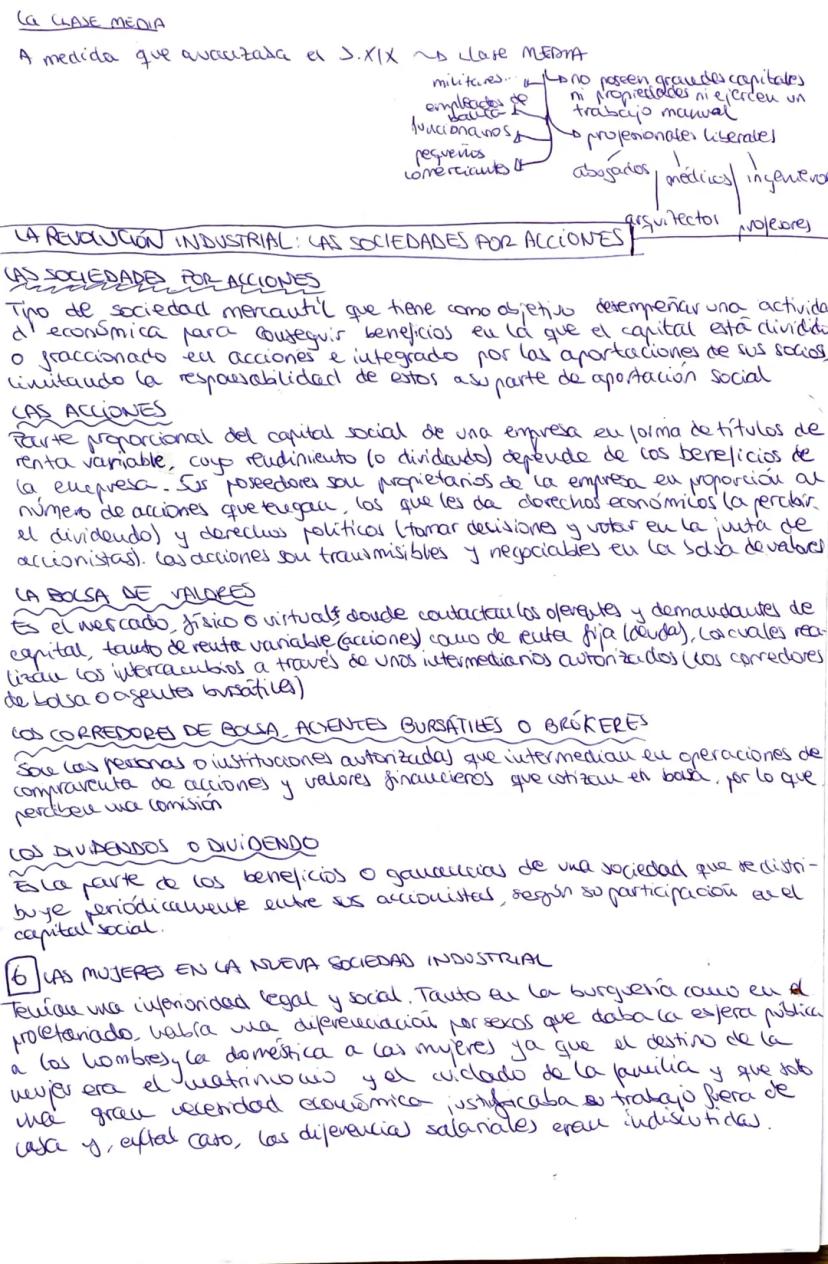 La CLASE MEDIA
A medida que avanzaba el S.XIX → clase MEDIA
militares..
empleados de banca
funcionarios
pequeños comerciantes
no poseen grandes capitales
ni propiedades ni ejercen un
trabajo manual
profesionales liberales
abogados médicos ingenieros
arquitector profesores
LA REVOLUCIÓN INDUSTRIAL: LAS SOCIEDADES POR ACCIONES
LAS SOCIEDADES POR ACCIONES
Tipo de sociedad mercantil que tiene como objetivo desempeñar una activida
d económica para conseguir beneficios en la que el capital está dividido
o fraccionado en acciones e integrado por las aportaciones de sus socios,
limitando la responsabilidad de estos a su parte de aportación social
LAS ACCIONES
Parte proporcional del capital social de una empresa en forma de títulos de
renta variable, cuyo rendimiento (o dividendo) depende de los beneficios de
la empresa. Sus poseedores son propietarios de la empresa en proporción al
número de acciones que tengan, los que les da derechos económicos (a percibir
el dividendo) y derechos políticos (tomar decisiones y votar en la junta de
accionistas). Las acciones son transmisibles y negociables en la bolsa de valores
LA BOLSA DE VALORES
Es el mercado, físico o virtual, donde contactan los oferentes y demandantes de
capital, tanto de renta variable (acciones) como de renta fija (deuda), los cuales rea-
lizan los intercambios a través de unos intermediarios autorizados (los corredores
de bolsa o agentes bursátiles)
LOS CORREDORES DE BOLSA, AGENTES BURSÁTILES O BRÓKERES
Son las personas o instituciones autorizadas que intermedian en operaciones de
compraventa de acciones y valores financieros que cotizan en bolsa, por lo que
perciben una comisión
LOS DIVIDENDOS O DIVIDENDO
Es la parte de los beneficios o ganancias de una sociedad que se distri-
buye periódicamente entre sus accionistas, según su participación en el
capital social.
6 LAS MUJERES EN LA NUEVA SOCIEDAD INDUSTRIAL
Tenían una inferioridad legal y social. Tanto en la burguesía como en el
proletariado, había una diferenciación por sexos que daba la esfera pública
a los hombres y la doméstica a las mujeres ya que el destino de la
mujer era el matrimonio y el cuidado de la familia y que solo
una gran necesidad económica justificaba su trabajo fuera de
casa y, en tal caso, las diferencias salariales eran indiscutidas.